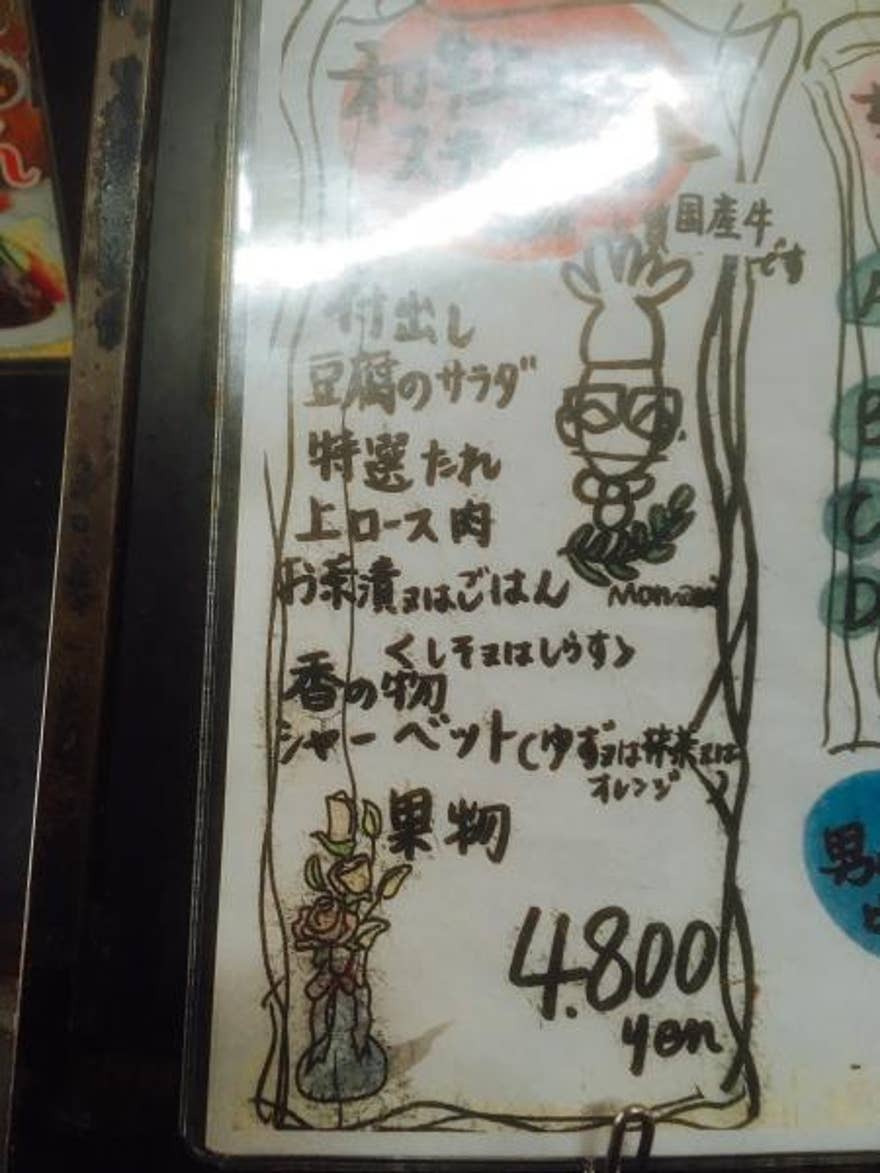 和
ス
国産牛
です
付出し
豆腐のサラダ
特選たれ
上ロース肉
お茶漬又はごはん
くしそ又はしらす>
香の物
シャーベット(ゆず又は抹茶又は
オレンジ)
果物
4.800
yen
A
B
C
D
男